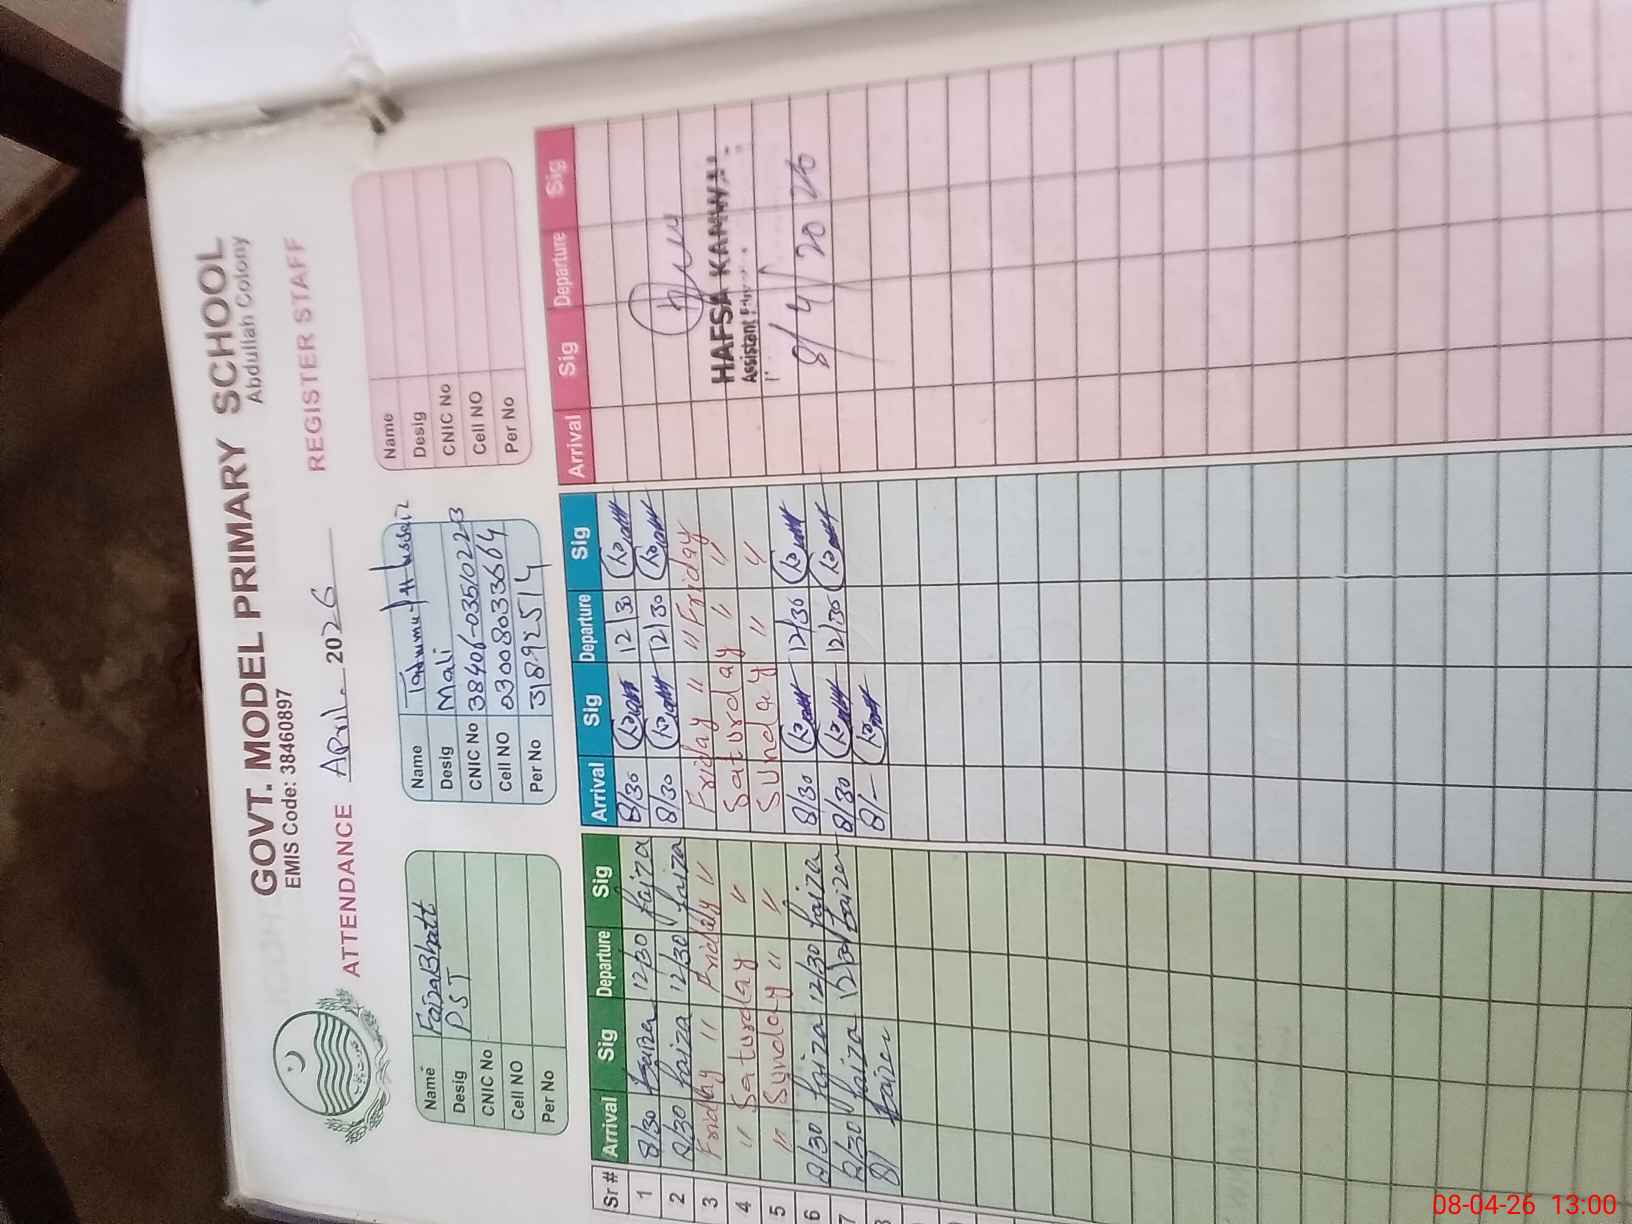 GOVT. MODEL PRIMARY SCHOOL
EMIS Code: 38460897
Abdullah Colony
ATTENDANCE April. 2026 REGISTER STAFF
Name Faiza Bhatt
Desig PST
CNIC No
Cell NO
Per No
Name
Desig Mali
CNIC No
Cell NO 03008033664
Per No 31892514
Name
Desig
CNIC No
Cell NO
Per No
Sr # Arrival Sig Departure Sig Arrival Sig Departure Sig Arrival Sig Departure Sig
1 8/30 faiza 12/30 faiza 8/30 12/30
2 8/30 faiza 12/30 faiza 8/30 12/30
3 Friday " Friday " Friday " " Friday
4 " Saturday " Saturday " "
5 " Sunday " " Sunday " "
6 8/30 faiza 12/30 faiza 8/30 12/30
7 8/30 faiza 12/30 faiza 8/30 12/30
8 8/ faiza 8/-
HAFSA KANWAL
Assistant
8/4/2026
08-04-26 13:00